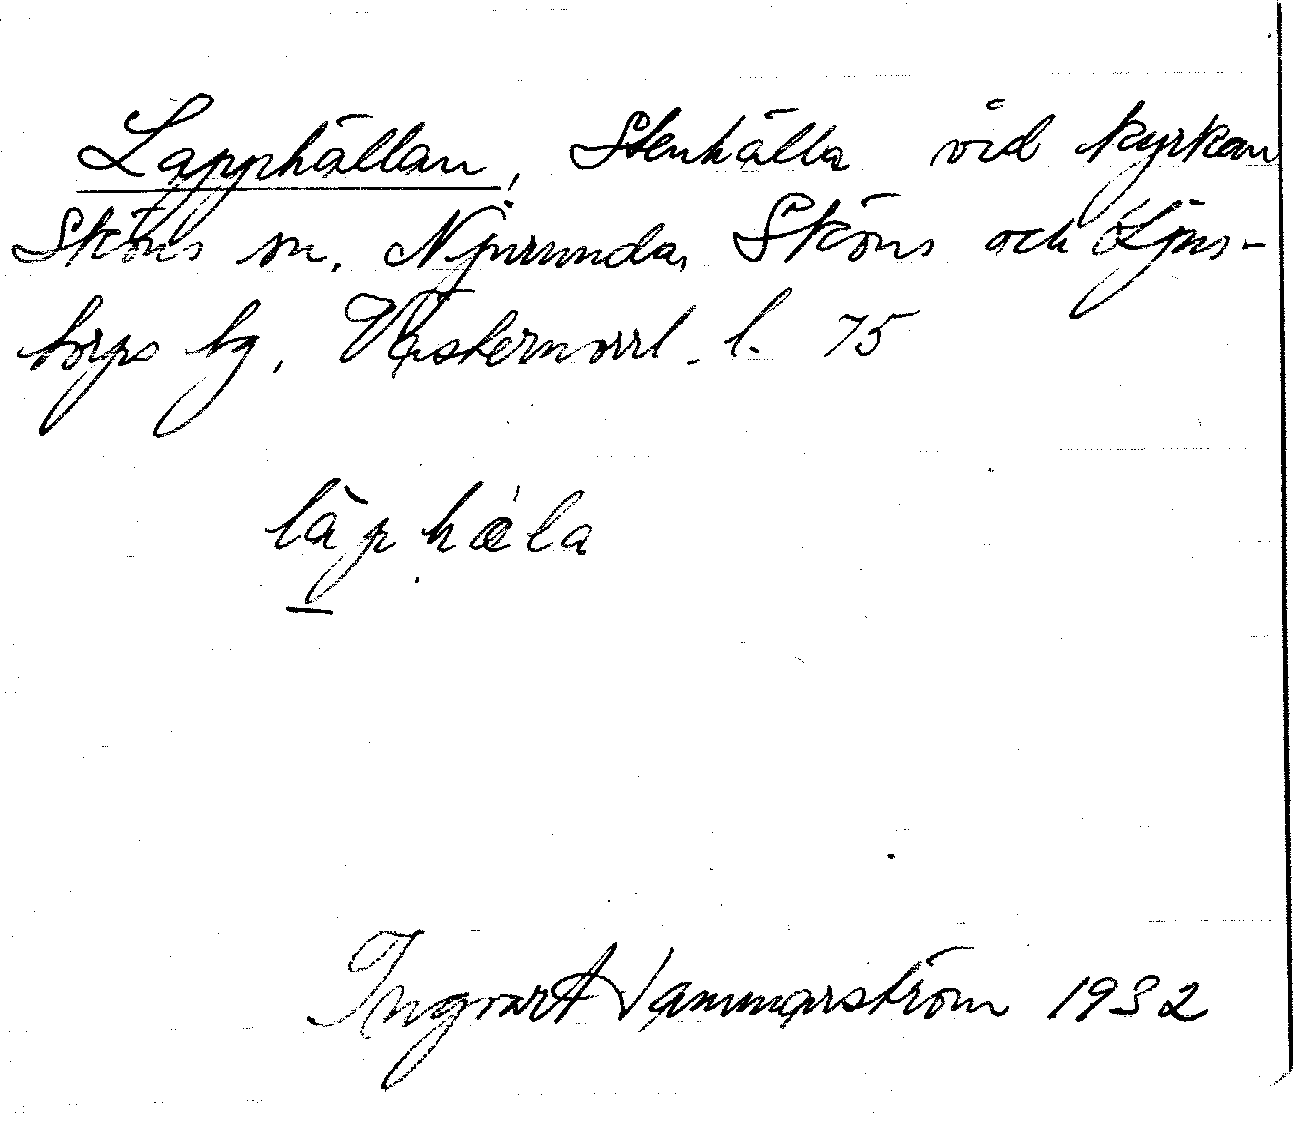 Lapphällan, Stenhälla vid kyrkan
Sköns sn. Njurunda, Sköns och Ljus-
torps tg, Västernorrl. l. 75
làphæ̀la
Ingvart Hammarström 1932